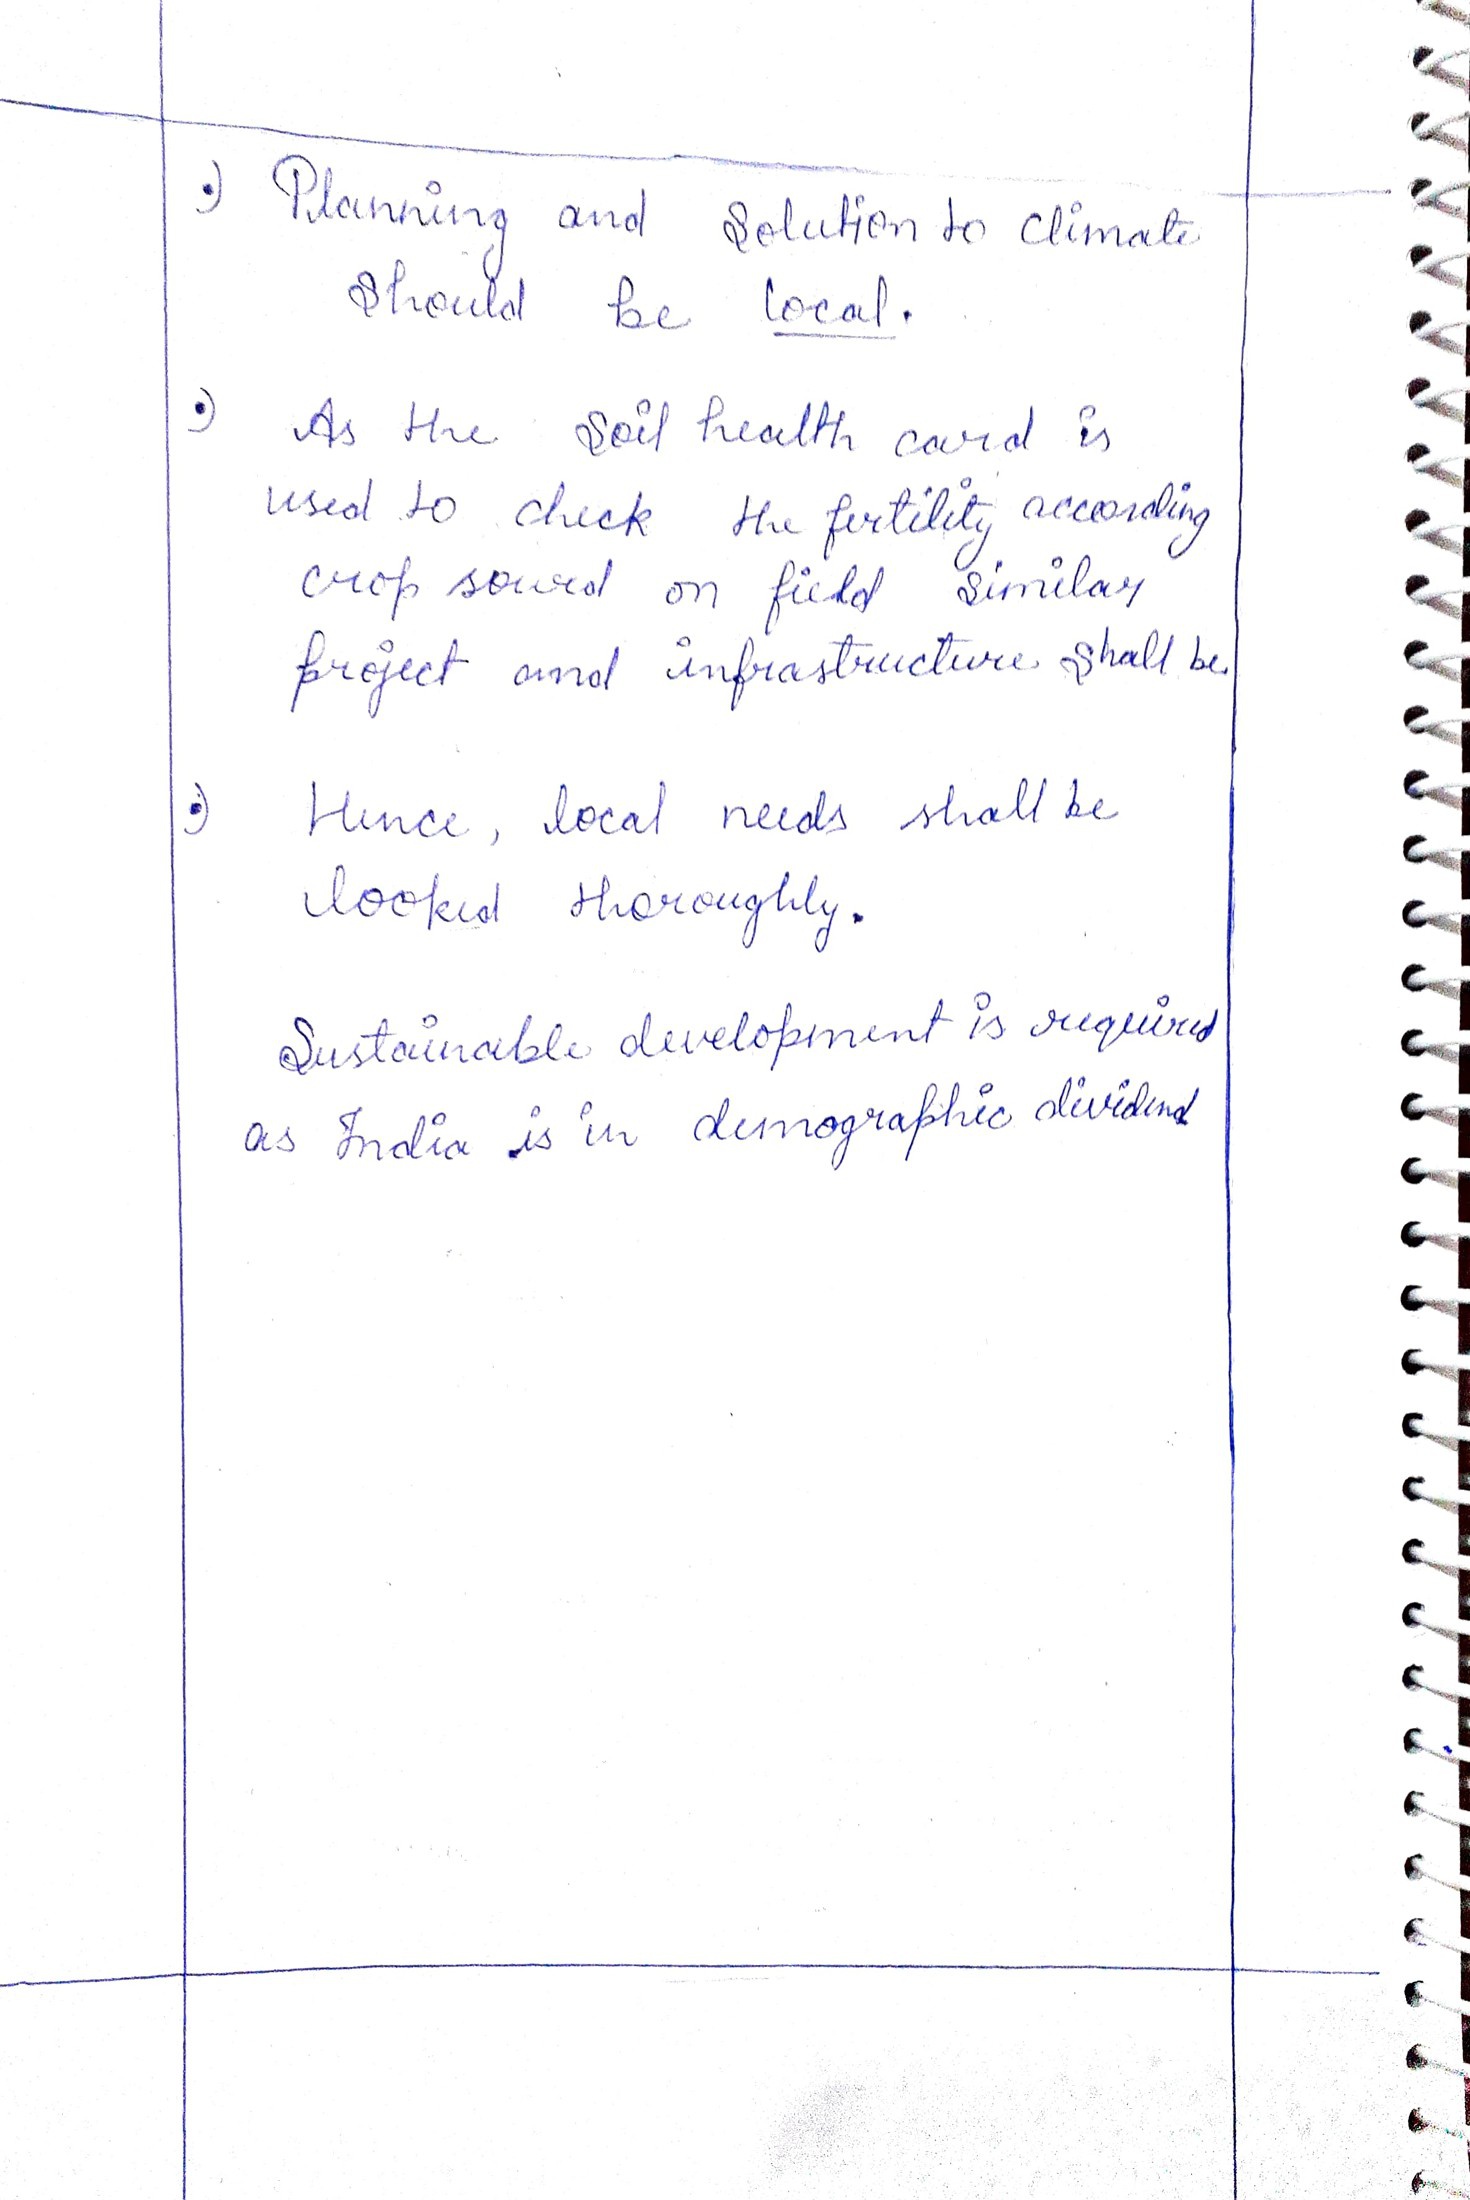 •) Planning and Solution to climate
Should be local.
•) As the Soil health card is
used to check the fertility according
crop sowed on field similar
project and infrastructure shall be
•) Hence, local needs shall be
looked thoroughly.
Sustainable development is required
as India is in demographic dividend